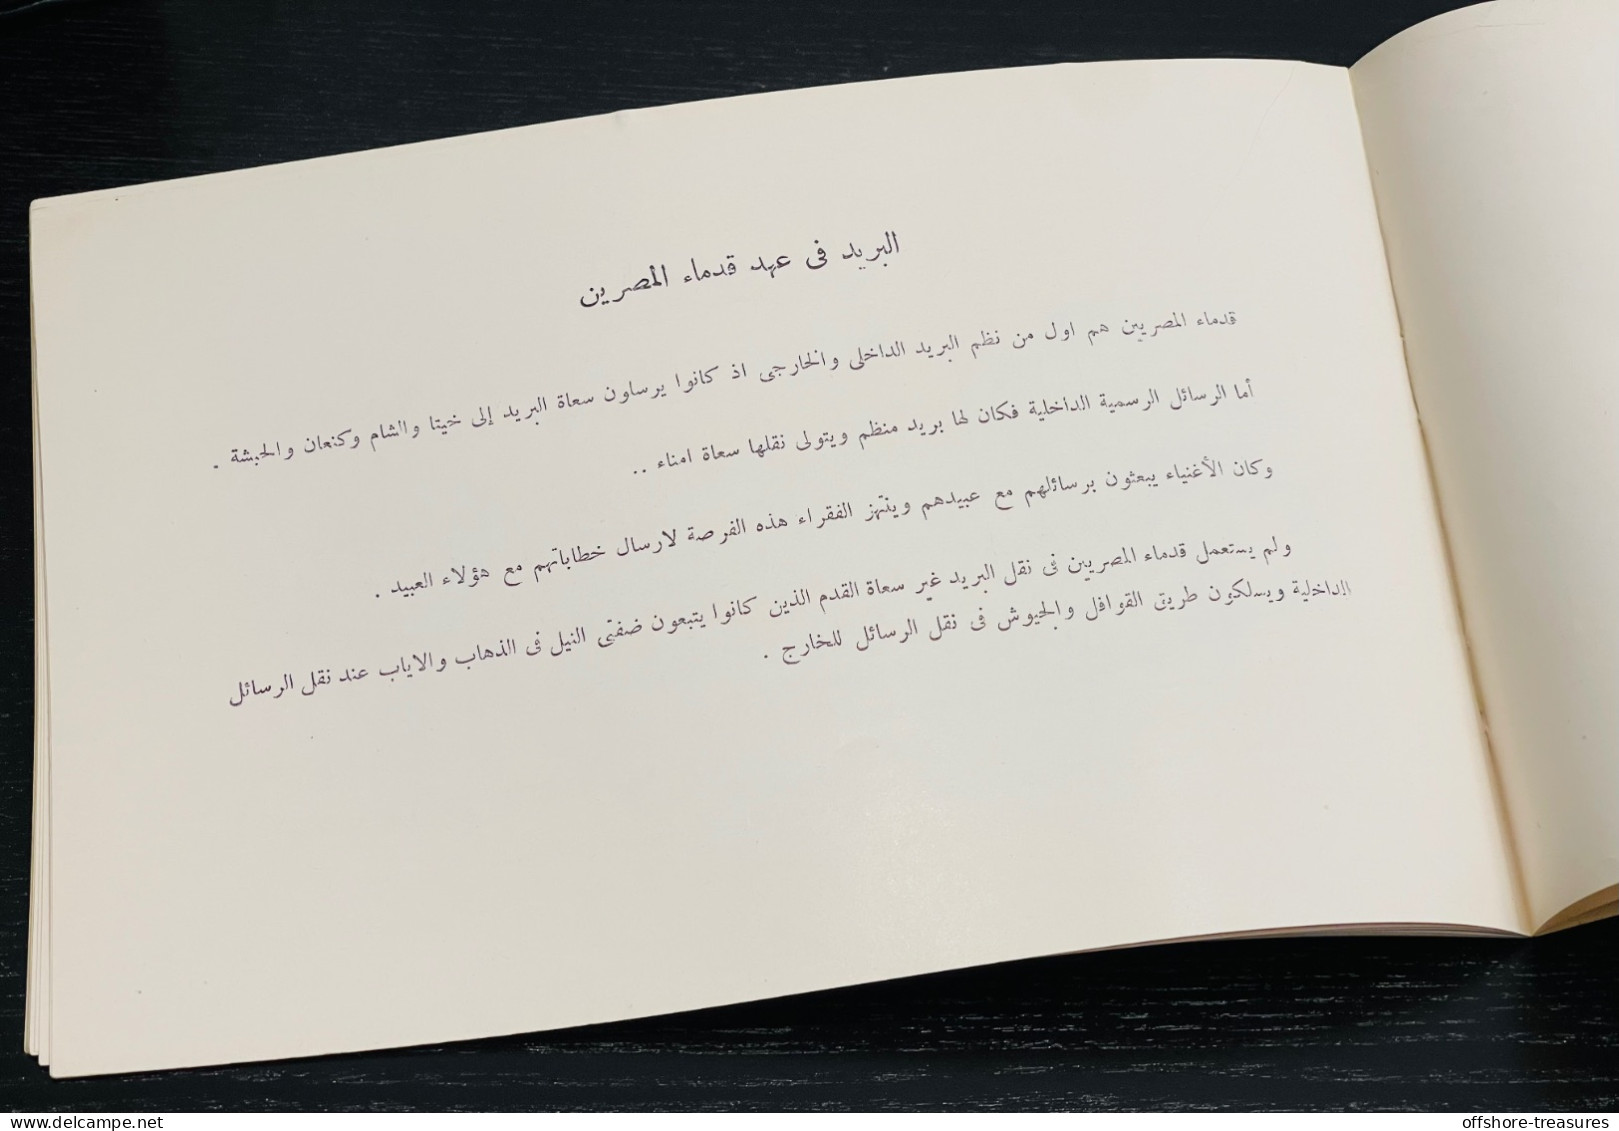 البريد فى عهد قدماء المصرين
قدماء المصريين هم اول من نظم البريد الداخلى والخارجى اذ كانوا يرساون سعاة البريد إلى خيتا والشام وكنعان والحبشة .
أما الرسائل الرسمية الداخلية فكان لها بريد منظم ويتولى نقلها سعاة امناء ..
وكان الأغنياء يبعثون برسائلهم مع عبيدهم وينتهز الفقراء هذه الفرصة لارسال خطاباتهم مع هؤلاء العبيد .
ولم يستعمل قدماء المصريين فى نقل البريد غير سعاة القدم الذين كانوا يتبعون ضفتى النيل فى الذهاب والاياب عند نقل الرسائل
الداخلية ويسلكون طريق القوافل والجيوش فى نقل الرسائل للخارج .
www.delcampe.net
offshore-treasures